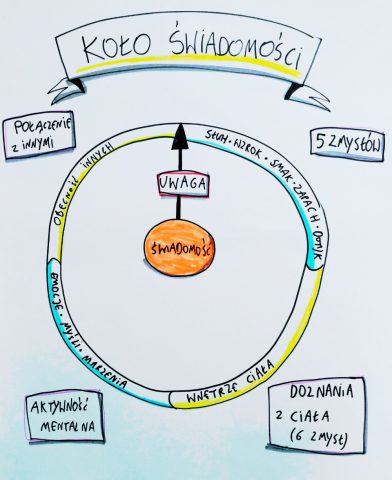 KOŁO ŚWIADOMOŚCI
POŁĄCZENIE
Z INNYMI
5 ZMYSŁÓW
OBECNOŚĆ INNYCH
SŁUH · WZROK · SMAK · ZAPACH · DOTYK
UWAGA
ŚWIADOMOŚĆ
EMOCJE · MYŚLI · MARZENIA
WNĘTRZE CIAŁA
AKTYWNOŚĆ
MENTALNA
DOZNANIA
Z CIAŁA
(6 ZMYSŁ)